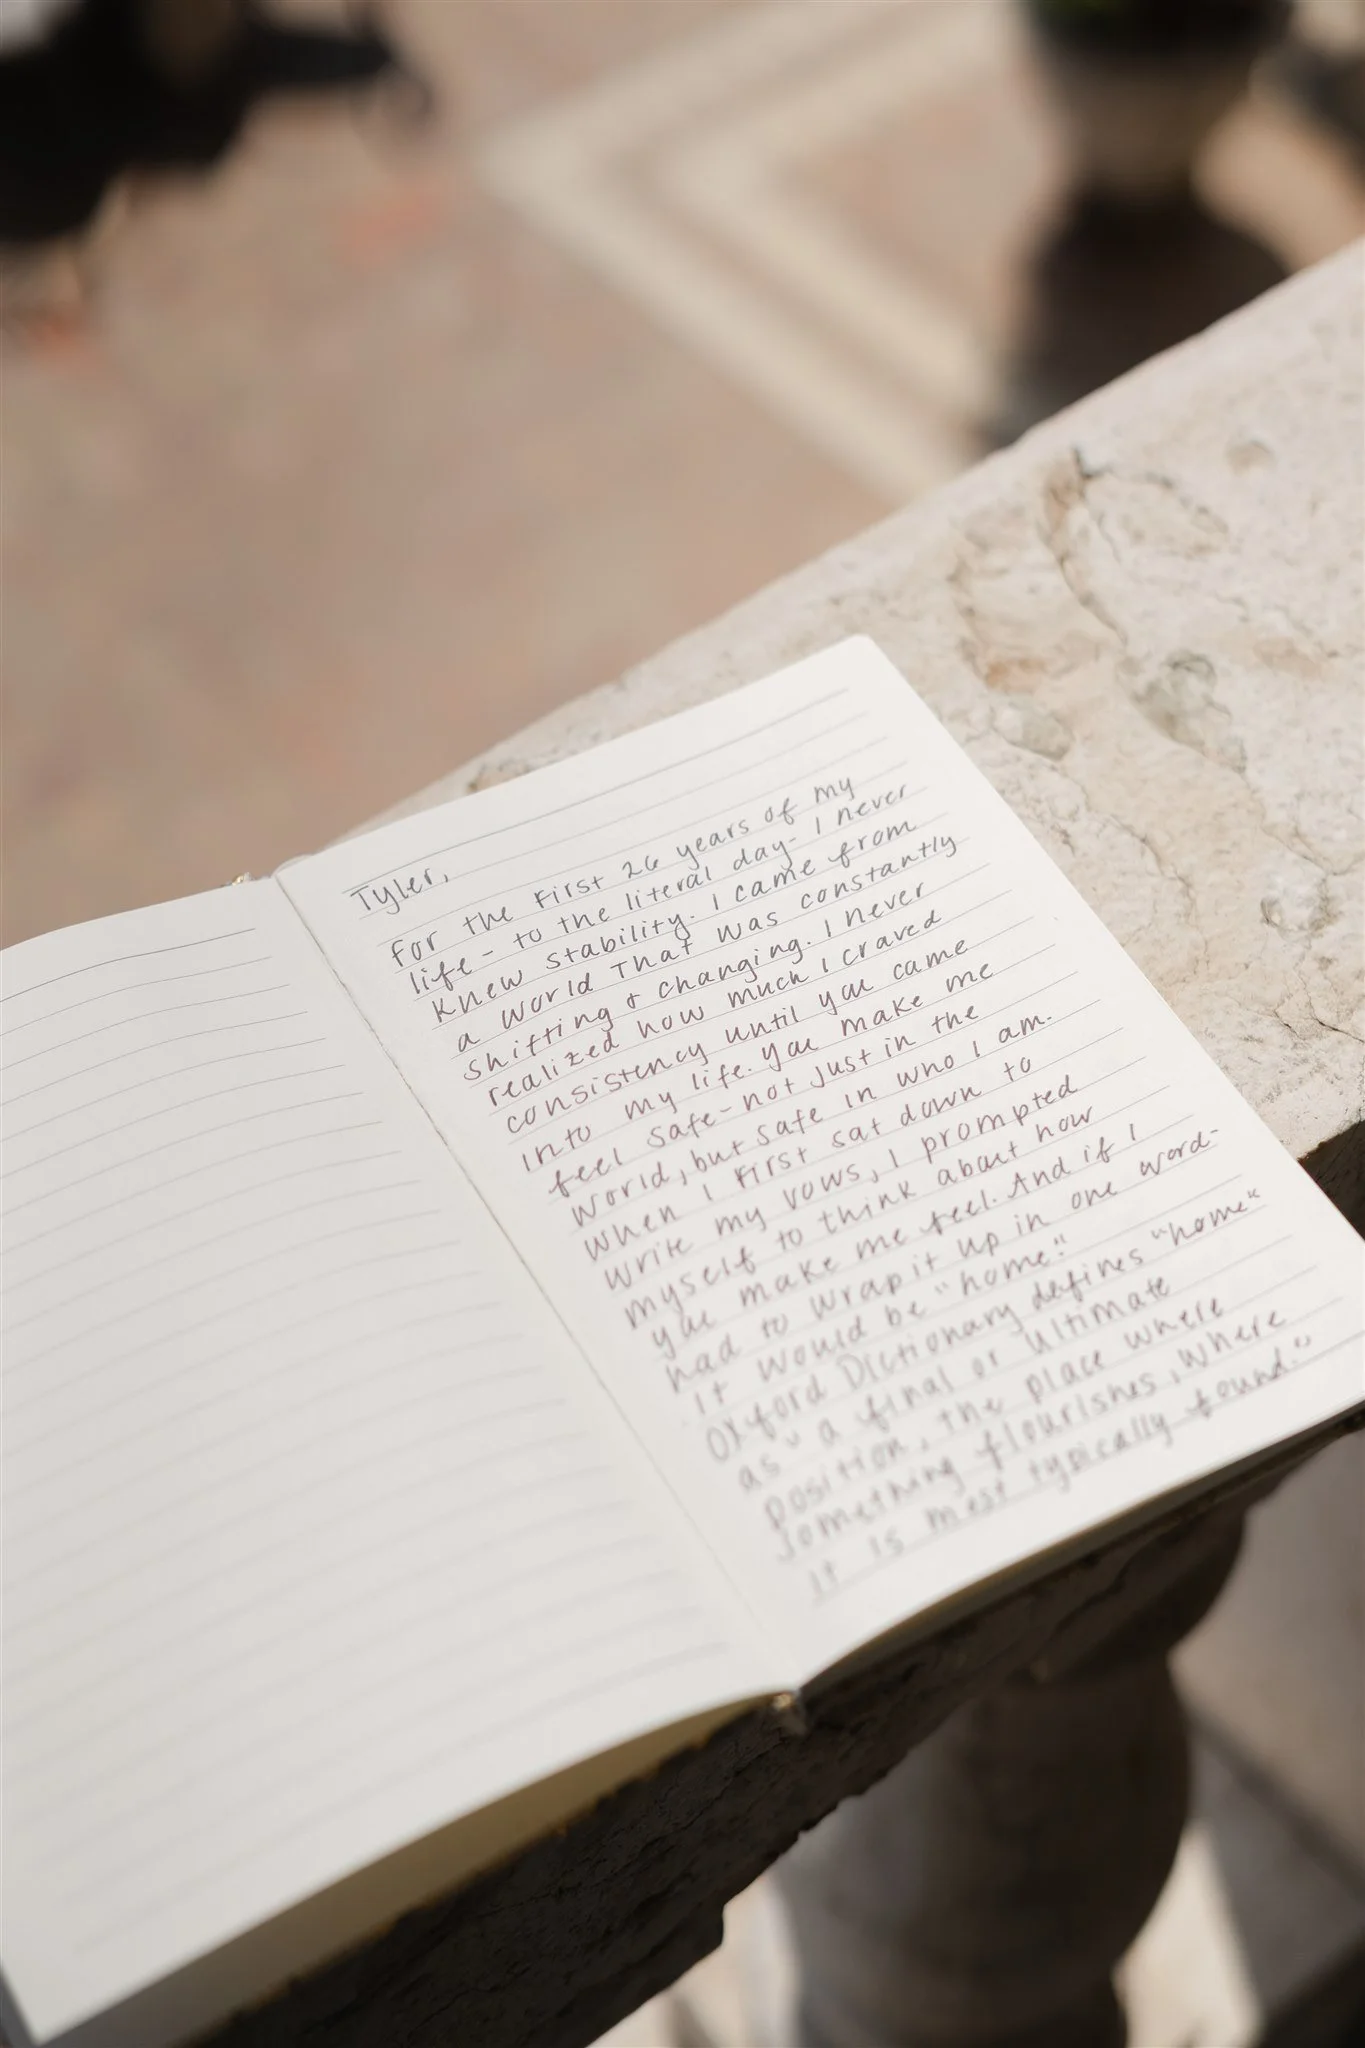 Tyler,
For the first 26 years of my
life - to the literal day - I never
knew stability. I came from
a world that was constantly
shifting & changing. I never
realized how much I craved
consistency until you came
into my life. You make me
feel safe - not just in the
world, but safe in who I am.
When I first sat down to
write my vows, I prompted
myself to think about how
you make me feel. And if I
had to wrap it up in one word -
it would be "home."
Oxford Dictionary defines "home"
as "a final or ultimate
position, the place where
something flourishes, where
it is most typically found."